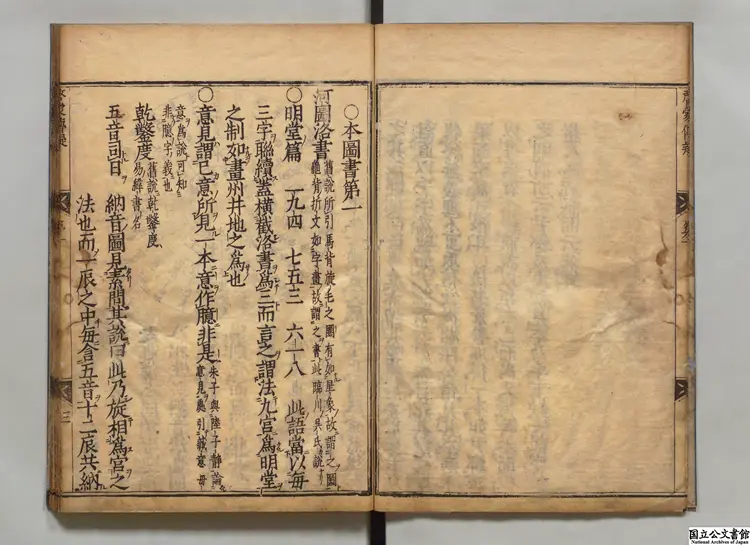 〇本圖書第一
河圖洛書 舊說所引馬背旋毛之圈有如星象故謂之圖
龜背折文如字畫故謂之書此臨川吳氏說
〇明堂篇 二九四 七五三 六一八 此語當以每
三字聯續蓋橫截洛書爲三而言之謂法九宮爲明堂
之制如畫州井地之爲也
〇意見謂己意所見一本意作臆非是 朱子與陸子靜論
意見處引義意毋
意爲說可知
非臆字義也
乾鑿度 舊說乾鑿度
易緯書名
五音 曰 納音圖見素問其說曰此乃旋相爲宮之
法也而一辰之中每含五音十二辰共納
三
国立公文書館
National Archives of Japan